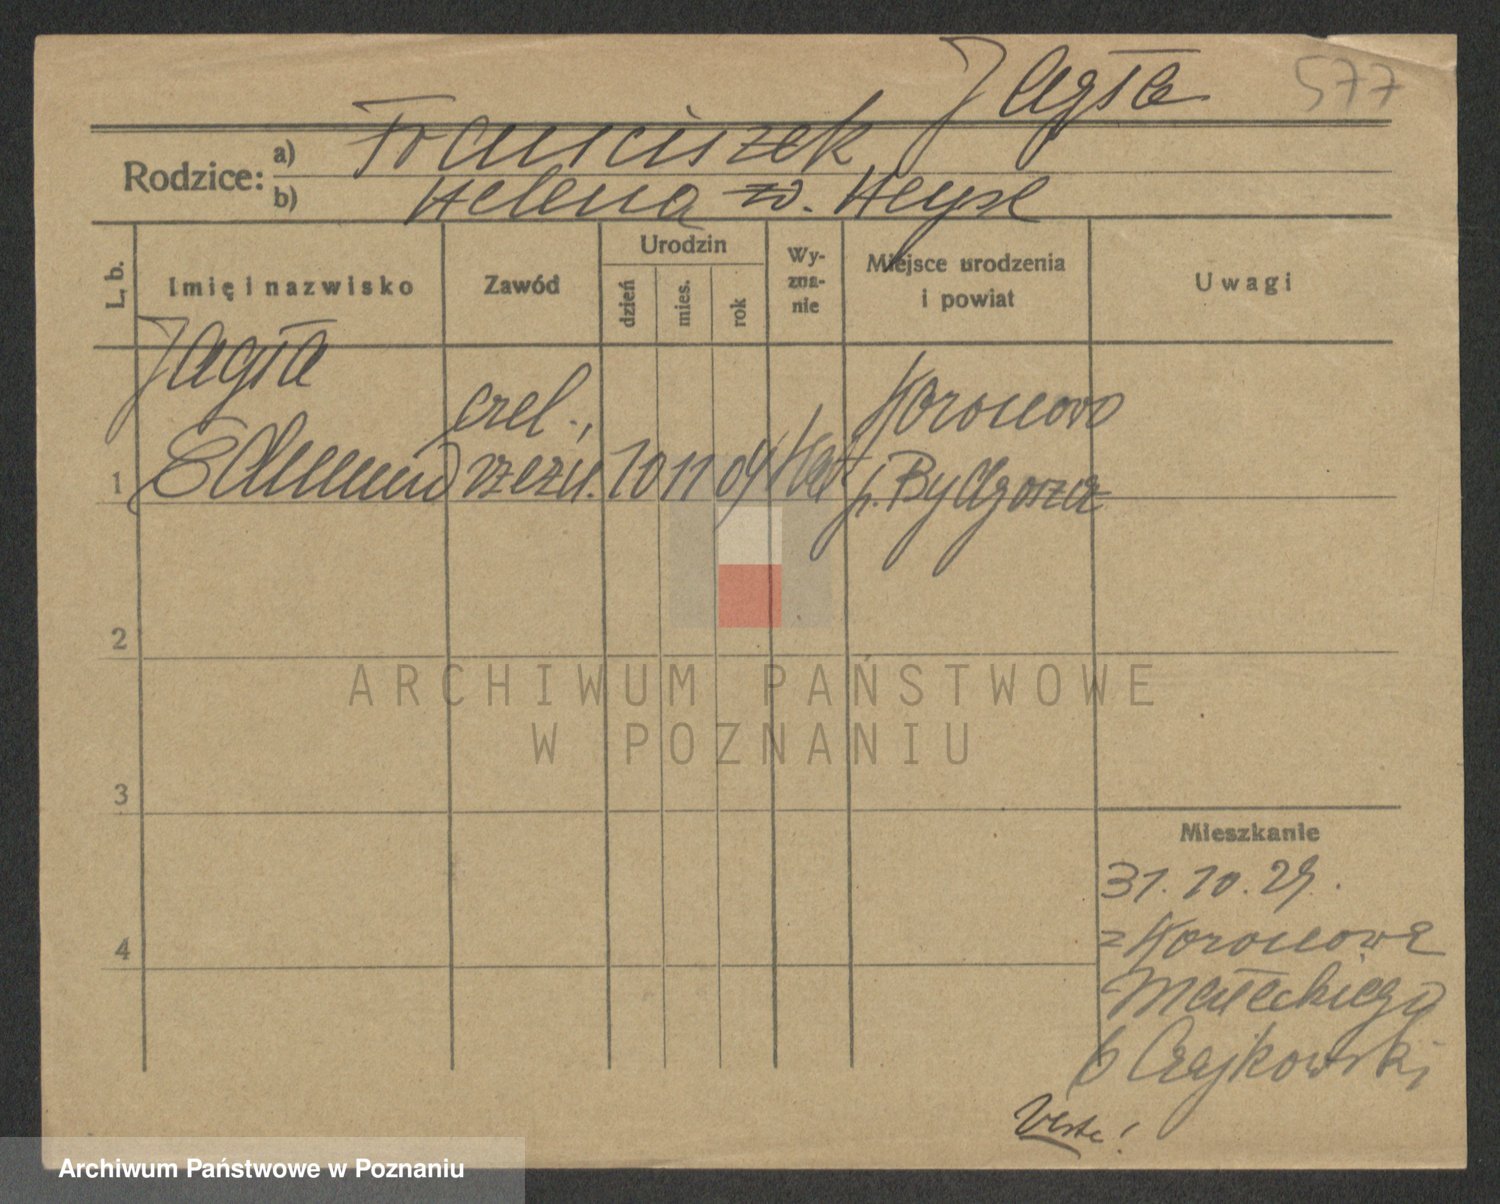 Jagła
577
Rodzice: a) Franciszek
b) Helena zd. Heyse
L. b.
Imię i nazwisko
Zawód
Urodzin
dzień
mies.
rok
Wy-
zna-
nie
Miejsce urodzenia
i powiat
Uwagi
Jagła
czel.,
Koronowo
1 Edmund rzeźn. 10 11 09 kat p. Bydgoszcz
2
ARCHIWUM PAŃSTWOWE
W POZNANIU
3
Mieszkanie
31.10.29.
z Koronowa
4
Małeckiego
6 Czajkowski
Verte!
Archiwum Państwowe w Poznaniu